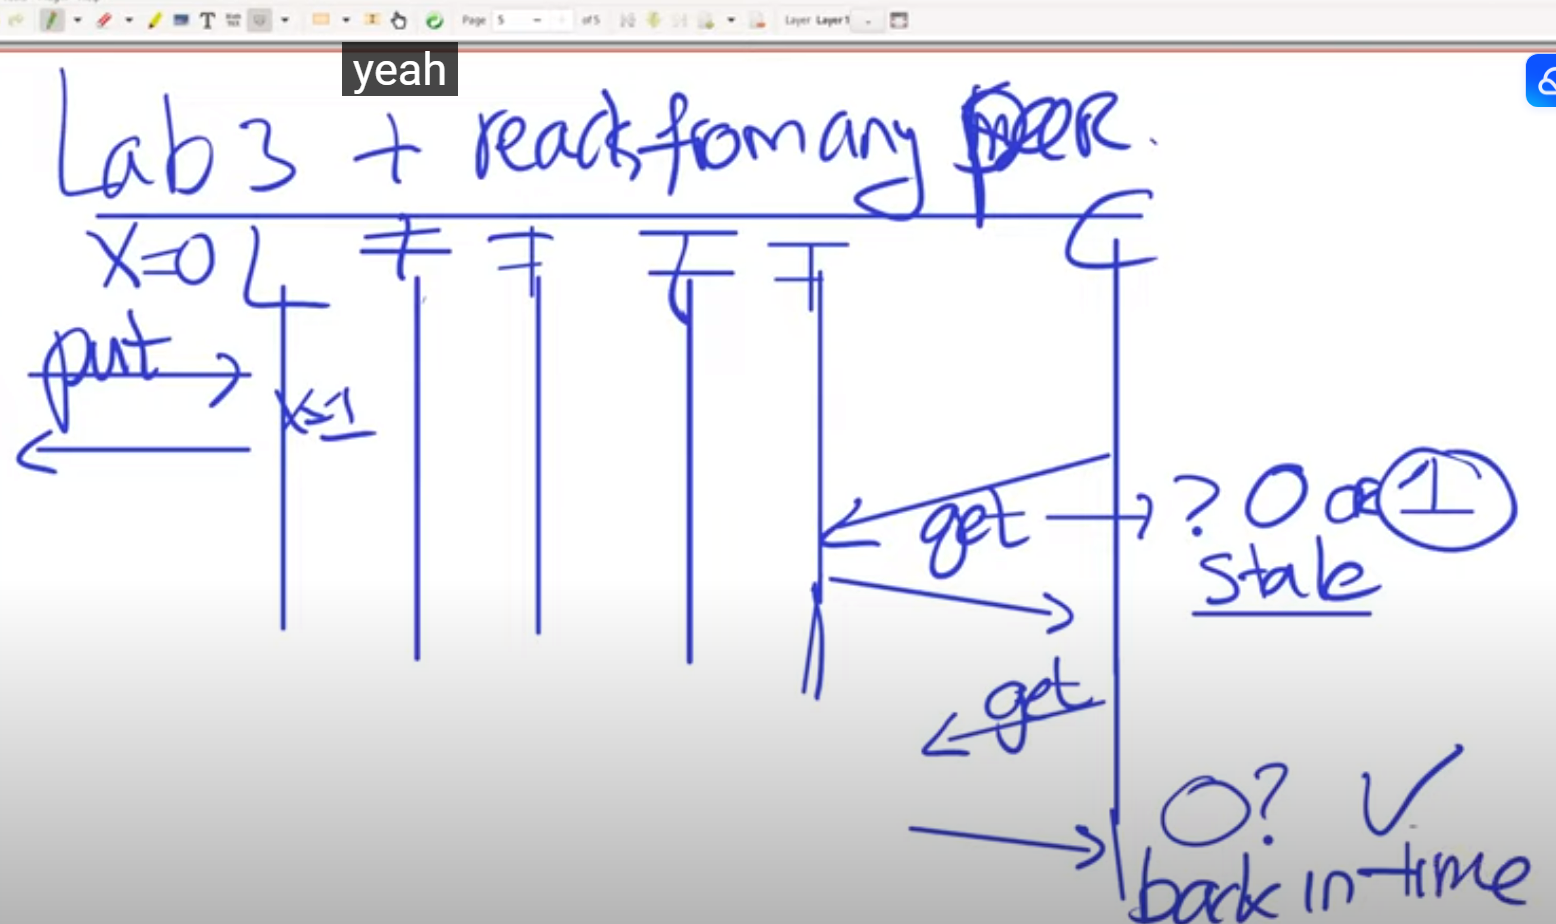 Page 5 of 5 Layer Layer 1
yeah
Lab 3 + reads from any peer.
X=0 L F F F F C
put
X=1
get → ? 0 or 1
stale
get
0? ✓
back in-time